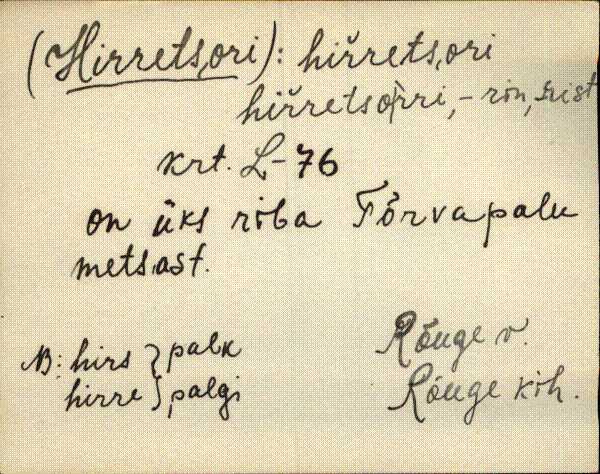 (Hirretsori): hiŕretsori
hiŕretsoŕri, -rin, -rist
krt. L-76
on üks riba Tõrvapalu
metsast.
NB: hirs } palk
hirre } palgi
Rõuge v.
Rõuge kih.